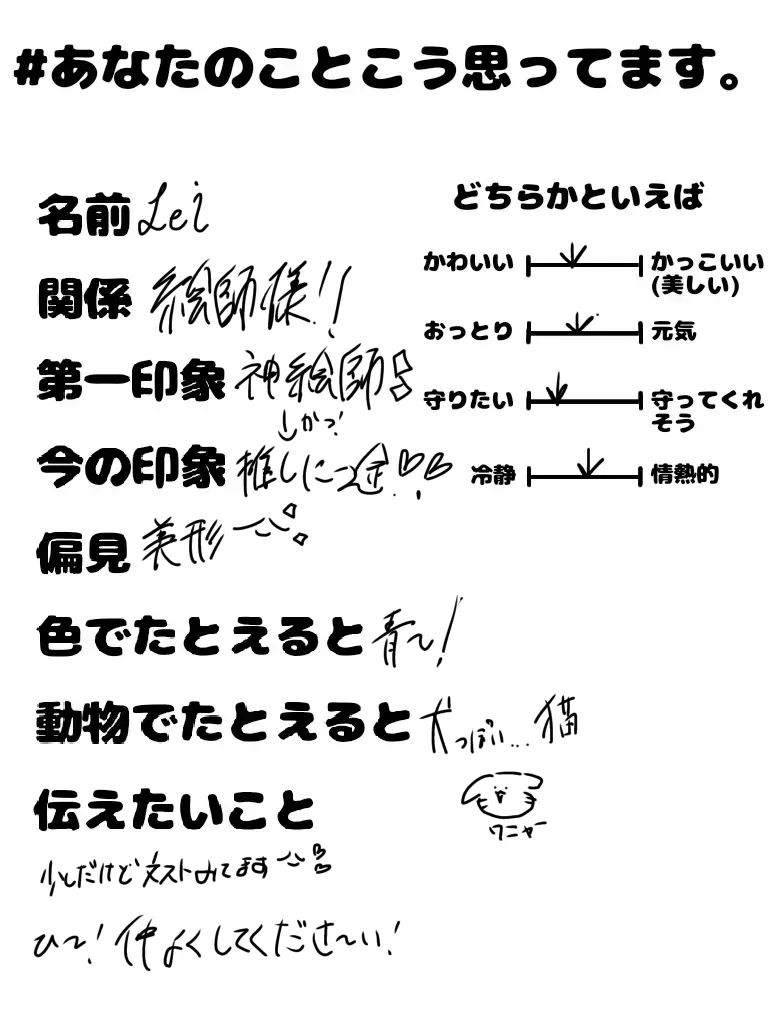 #あなたのことこう思ってます。
名前 Lei
関係 絵師様!!
第一印象 神絵師
しかっ!
今の印象 推しに一途
偏見 美形
色でたとえると 青〜!
動物でたとえると 犬っぽい...猫
ワニャー
伝えたいこと
少しだけどストみてます
ひ〜!仲よくしてくださ〜い!
どちらかといえば
かわいい かっこいい
(美しい)
おっとり 元気
守りたい 守ってくれ
そう
冷静 情熱的